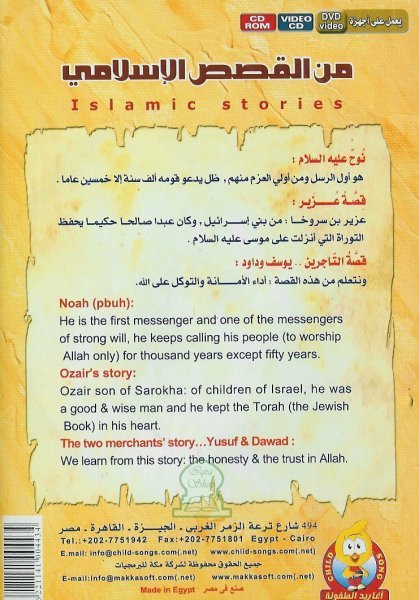 CD ROM
VIDEO CD
DVD video
يعمل على أجهزة
من القصص الإسلامي
Islamic stories
نُوحٌ عليه السلام :
هو أول الرسل ومن أولي العزم منهم , ظل يدعو قومه ألف سنة إلا خمسين عاما .
قصَّة عُزير :
عزير بن سروخا : من بني إسرائيل , وكان عبدا صالحا حكيما يحفظ
التوراة التي أنزلت على موسى عليه السلام .
قصَّة التَّاجرين .. يوسف وداود :
ونتعلم من هذه القصة : أداء الأمانة والتوكل على الله.
Noah (pbuh):
He is the first messenger and one of the messengers
of strong will, he keeps calling his people (to worship
Allah only) for thousand years except fifty years.
Ozair's story:
Ozair son of Sarokha: of children of Israel, he was
a good & wise man and he kept the Torah (the Jewish
Book) in his heart.
The two merchants' story...Yusuf & Dawad :
We learn from this story: the honesty & the trust in Allah.
Iqra Shop
494 شارع ترعة الزمر الغربى - الجيزة - القاهرة - مصر
Tel.:+202-7751942 Fax:+202-7751801 Egypt - Cairo
E-mail: info@child-songs.com(.net) www.child-songs.com(.net)
جميع الحقوق محفوظة لشركة مكة للبرمجيات
E-mail: info@makkasoft.com(.net) www.makkasoft.com(.net)
Made in Egypt صنع في مصر
CHILD SONG
أغاريد الطفولة